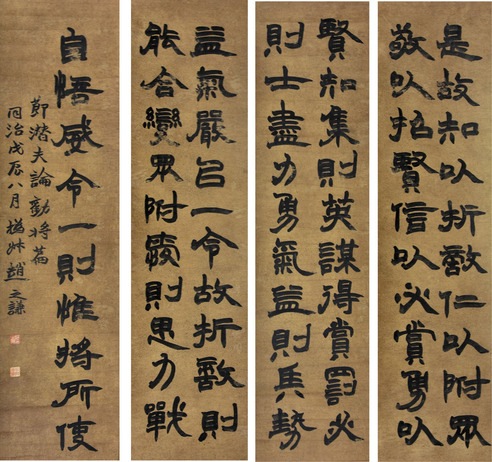 是故知以折敵仁以附眾
敬以招賢信以必賞勇以
賢知集則英謀得賞罰必
則士盡力勇氣益則兵勢
益氣嚴以一令故折敵則
能合變眾附愛則思力戰
自倍威令一則惟將所使
節潛夫論勸將篇
同治戊辰八月撝叔趙之謙